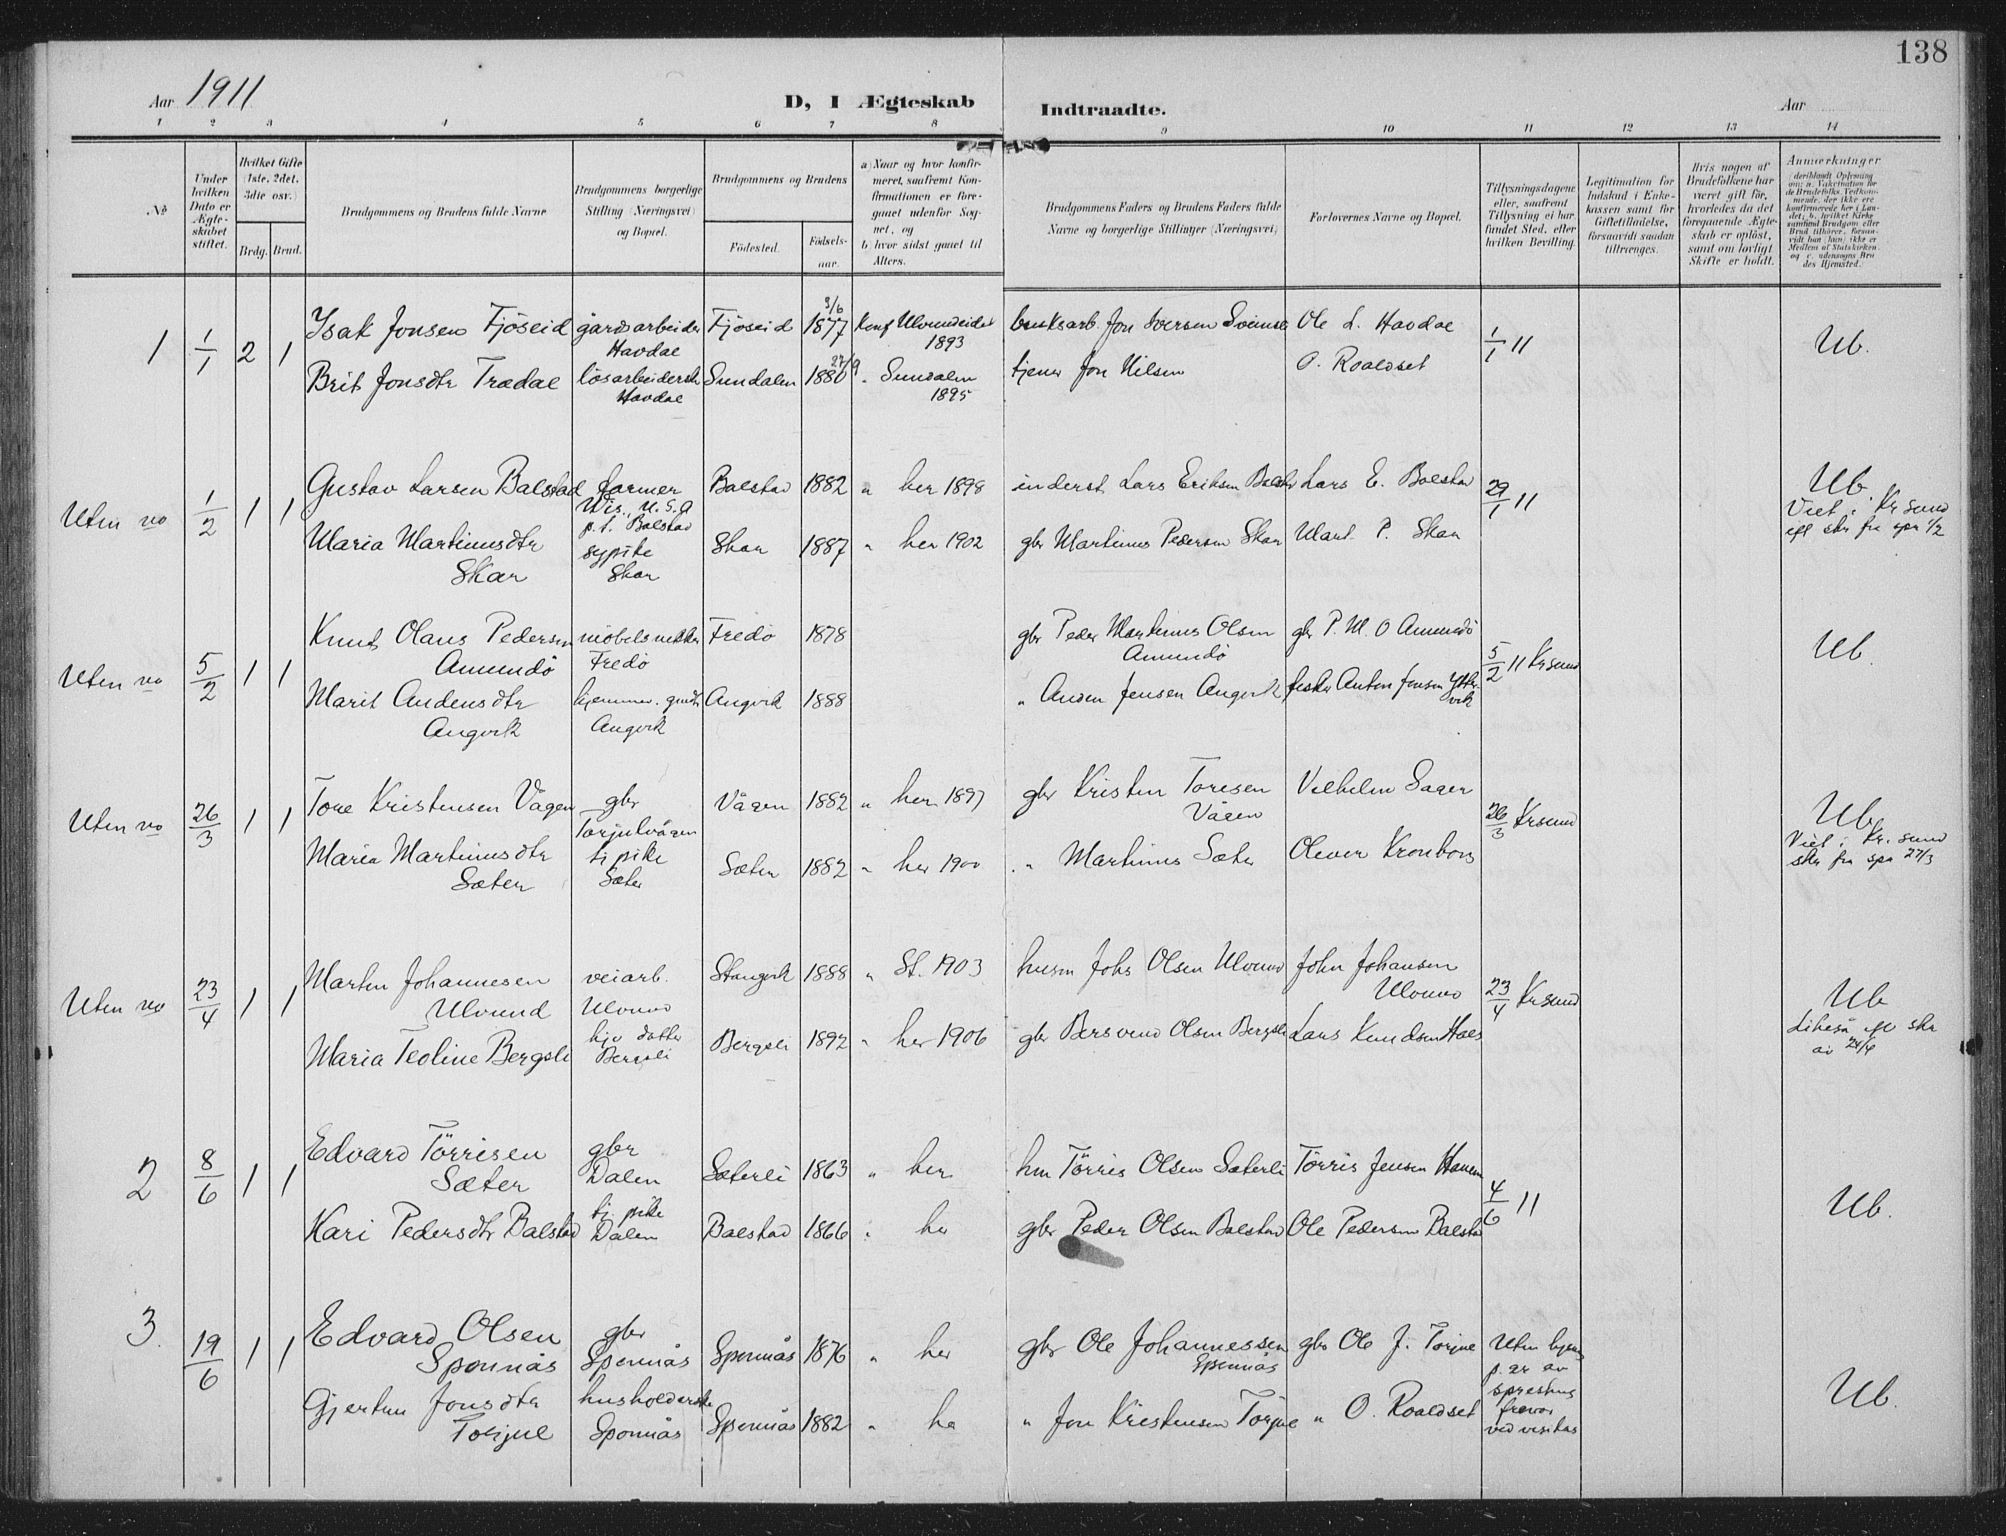 138
Aar 1911
D, I Ægteskab Indtraadte.
Aar
1 2 3 4 5 6 7 8 9 10 11 12 13 14
No
Under hvilken Dato er Ægteskabet stiftet.
Hvilket Gifte (1ste, 2det, 3die osv.)
Brdg. Brud.
Brudgommens og Brudens fulde Navne
Brudgommens borgerlige Stilling (Næringsvei) og Bopæl.
Brudgommens og Brudens
Fødested. Fødselsaar.
a) Naar og hvor konfirmeret, saafremt Konfirmationen er foregaaet udenfor Sognet, og
b) hvor sidst gaaet til Alters.
Brudgommens Faders og Brudens Faders fulde Navne og borgerlige Stillinger (Næringsvei)
Forlovernes Navne og Bopæl.
Tillysningsdagene eller, saafremt Tillysning ei har fundet Sted, efter hvilken Bevilling.
Legitimation for Indskud i Enkekassen samt for Giftetilladelse, forsaavidt saadan tiltrænges.
Hvis nogen af Brudefolkene har været gift før, hvorledes da det foregaaende Ægteskab er opløst, samt om lovligt Skifte er holdt.
Anmærkninger
1 1/1 2 1 Isak Jonsen Fjöseid gardsarbeider Fjöseid 3/6 1877 Konf Ulvundeidet Jon Iversen Ole L. Havdae 1/1 11 Ub.
Havdae 1893
Brit Jonsdtr Trædae lösarbeiderske Sundalen 27/9 1880 " Sundalen tjener Jon Nilsen O. Roaldset
Havdae 1895
Uten no 1/2 1 1 Gustav Larsen Balstad farmer Balstad 1882 " her 1898 inderst Lars Eriksen Lars E. Balstad 29/1 11 Ub
Wis., U.S.A
p.t. Balstad
Viet i Kr.sund
Maria Martinusdtr sypike Skar 1887 " her 1902 gbr Martinus Pedersen Skar Mart. P. Skar
Skar Skar
Uten no 5/2 1 1 Knut Olaus Pedersen möbelsnekker Fredö 1878 gbr Peder Martinus Olsen gbr P. M. O Amundö 5/2 11 Krsund Ub.
Amundö Fredö Amundö
Marit Andersdtr Angvik 1888 " Jensen Angvik fisker Anton Jonsen
Angvik Angvik
Uten no 26/3 1 1 Tore Kristensen Vågen gbr Vågen 1882 " her 1897 gbr Kristen Toresen Vilhelm Sager 26/3 Krsund Ub.
Torjulvågen Vågen
Viet i Kr. sund
Maria Martinusdtr tj pike Sæter 1882 " her 1900 " Martinus Sæter
Sæter Sæter
Uten no 23/4 1 1 Martin Johannesen veiarb. Stangvik 1888 " St. 1903 husm Johs Olsen Ulvund John Johansen 23/4 Krsund Ub
Ulvund Ulvund Ulvund
Maria Teoline Bergsli hjv datter Bergsli 1892 " her 1906 gbr Olsen Bergsli Lars Knudsen
Bergsli
2 8/6 1 1 Edvard Törrisen gbr Sæterli 1863 " her hm Törris Olsen Sæterli Törris Jensen 4/6 11 Ub.
Sæter Dalen
tj. pike
Kari Pedersdtr Balstad Dalen Balstad 1866 " her gbr Peder Olsen Balstad Ole Pedersen Balstad
3. 19/6 1 1 Edvard Olsen gbr Sponnås 1876 " her gbr Ole Johannessen gbr Ole J. Torjue Uten
Sponnås Sponnås Sponnås
Ub.
Jonsdtr husholderske Sponnås 1882 " her " Jon Kristensen Torjue " O. Roaldset
Torjue Sponnås ved visitas